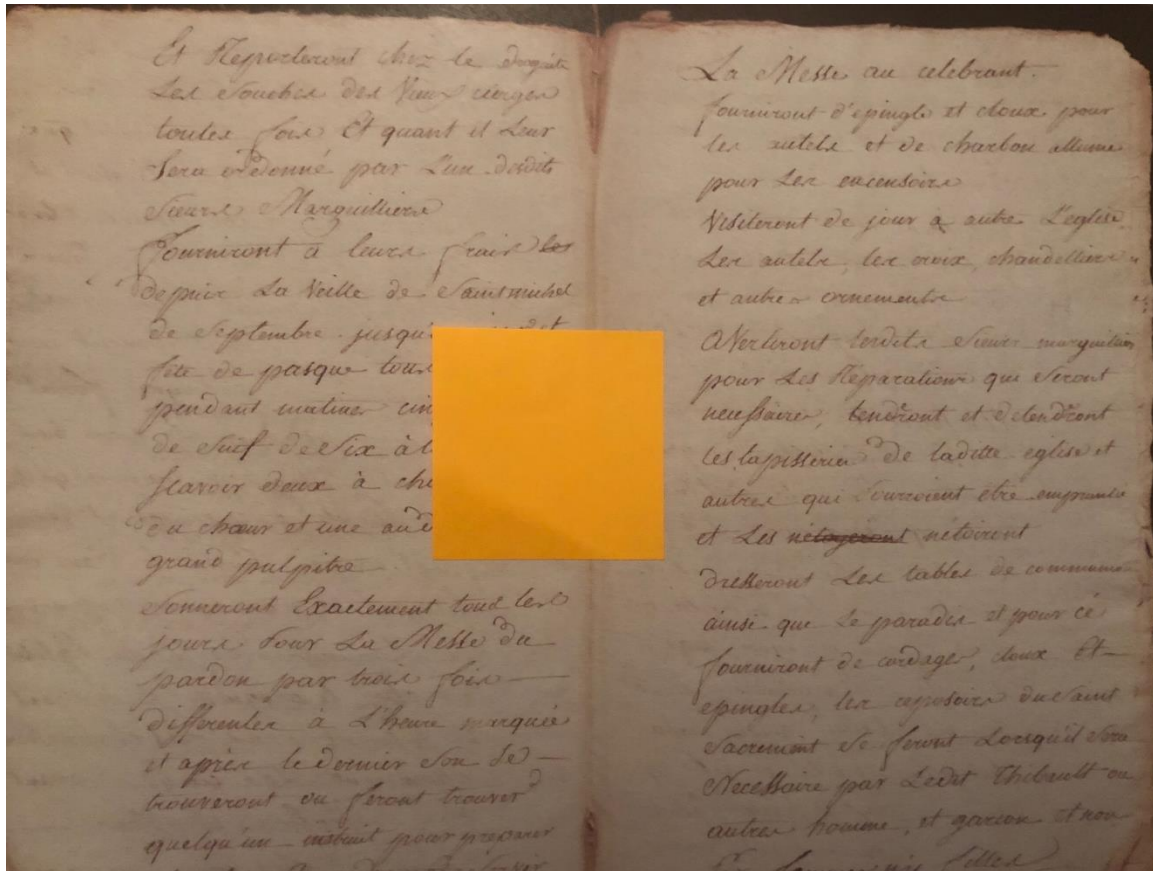 Et Reporteront chez le
Les souches des Vieux cierges
toutes fois Et quant il Leur
Sera ordonné par L'un desdits
Sieurs Marguilliers
fourniront a leurs frais les
depuis La Veille de Saint michel
de Septembre jusqu'
fête de pasque tous
pendant matines
de Suif de Six à
scavoir deux à
du chœur et une au
grand pulpitre
Sonneront Exactement tous les
jours pour La Messe du
pardon par trois fois
differentes à L'heure marquée
et après le dernier son se
trouveront ou feront trouver
quelqu'un instruit pour preparer
La Messe au celebrant.
fourniront d'epingle et cloux pour
les autels et de charbon allume
pour Les encensoirs
Visiteront de jour a autre L'eglise,
Les autels, les croix, chandelliers
et autres ornements
Averteront lesdits Sieurs marguilliers
pour Les Reparations qui Seront
necessaires, tendront et detendront
les tapisseries de laditte eglise et
autres qui pourroient etre empruntés
et Les netoyeront netoiront
dresseront Les tables de communion
ainsi que Le parades et pour cé
fourniront de cordages, cloux Et
epingles, les reposoirs du Saint
Sacrement Se feront Lorsqu'il Sera
Necessaire par Ledit Thibault ou
autres homme, et garcon et non
filles